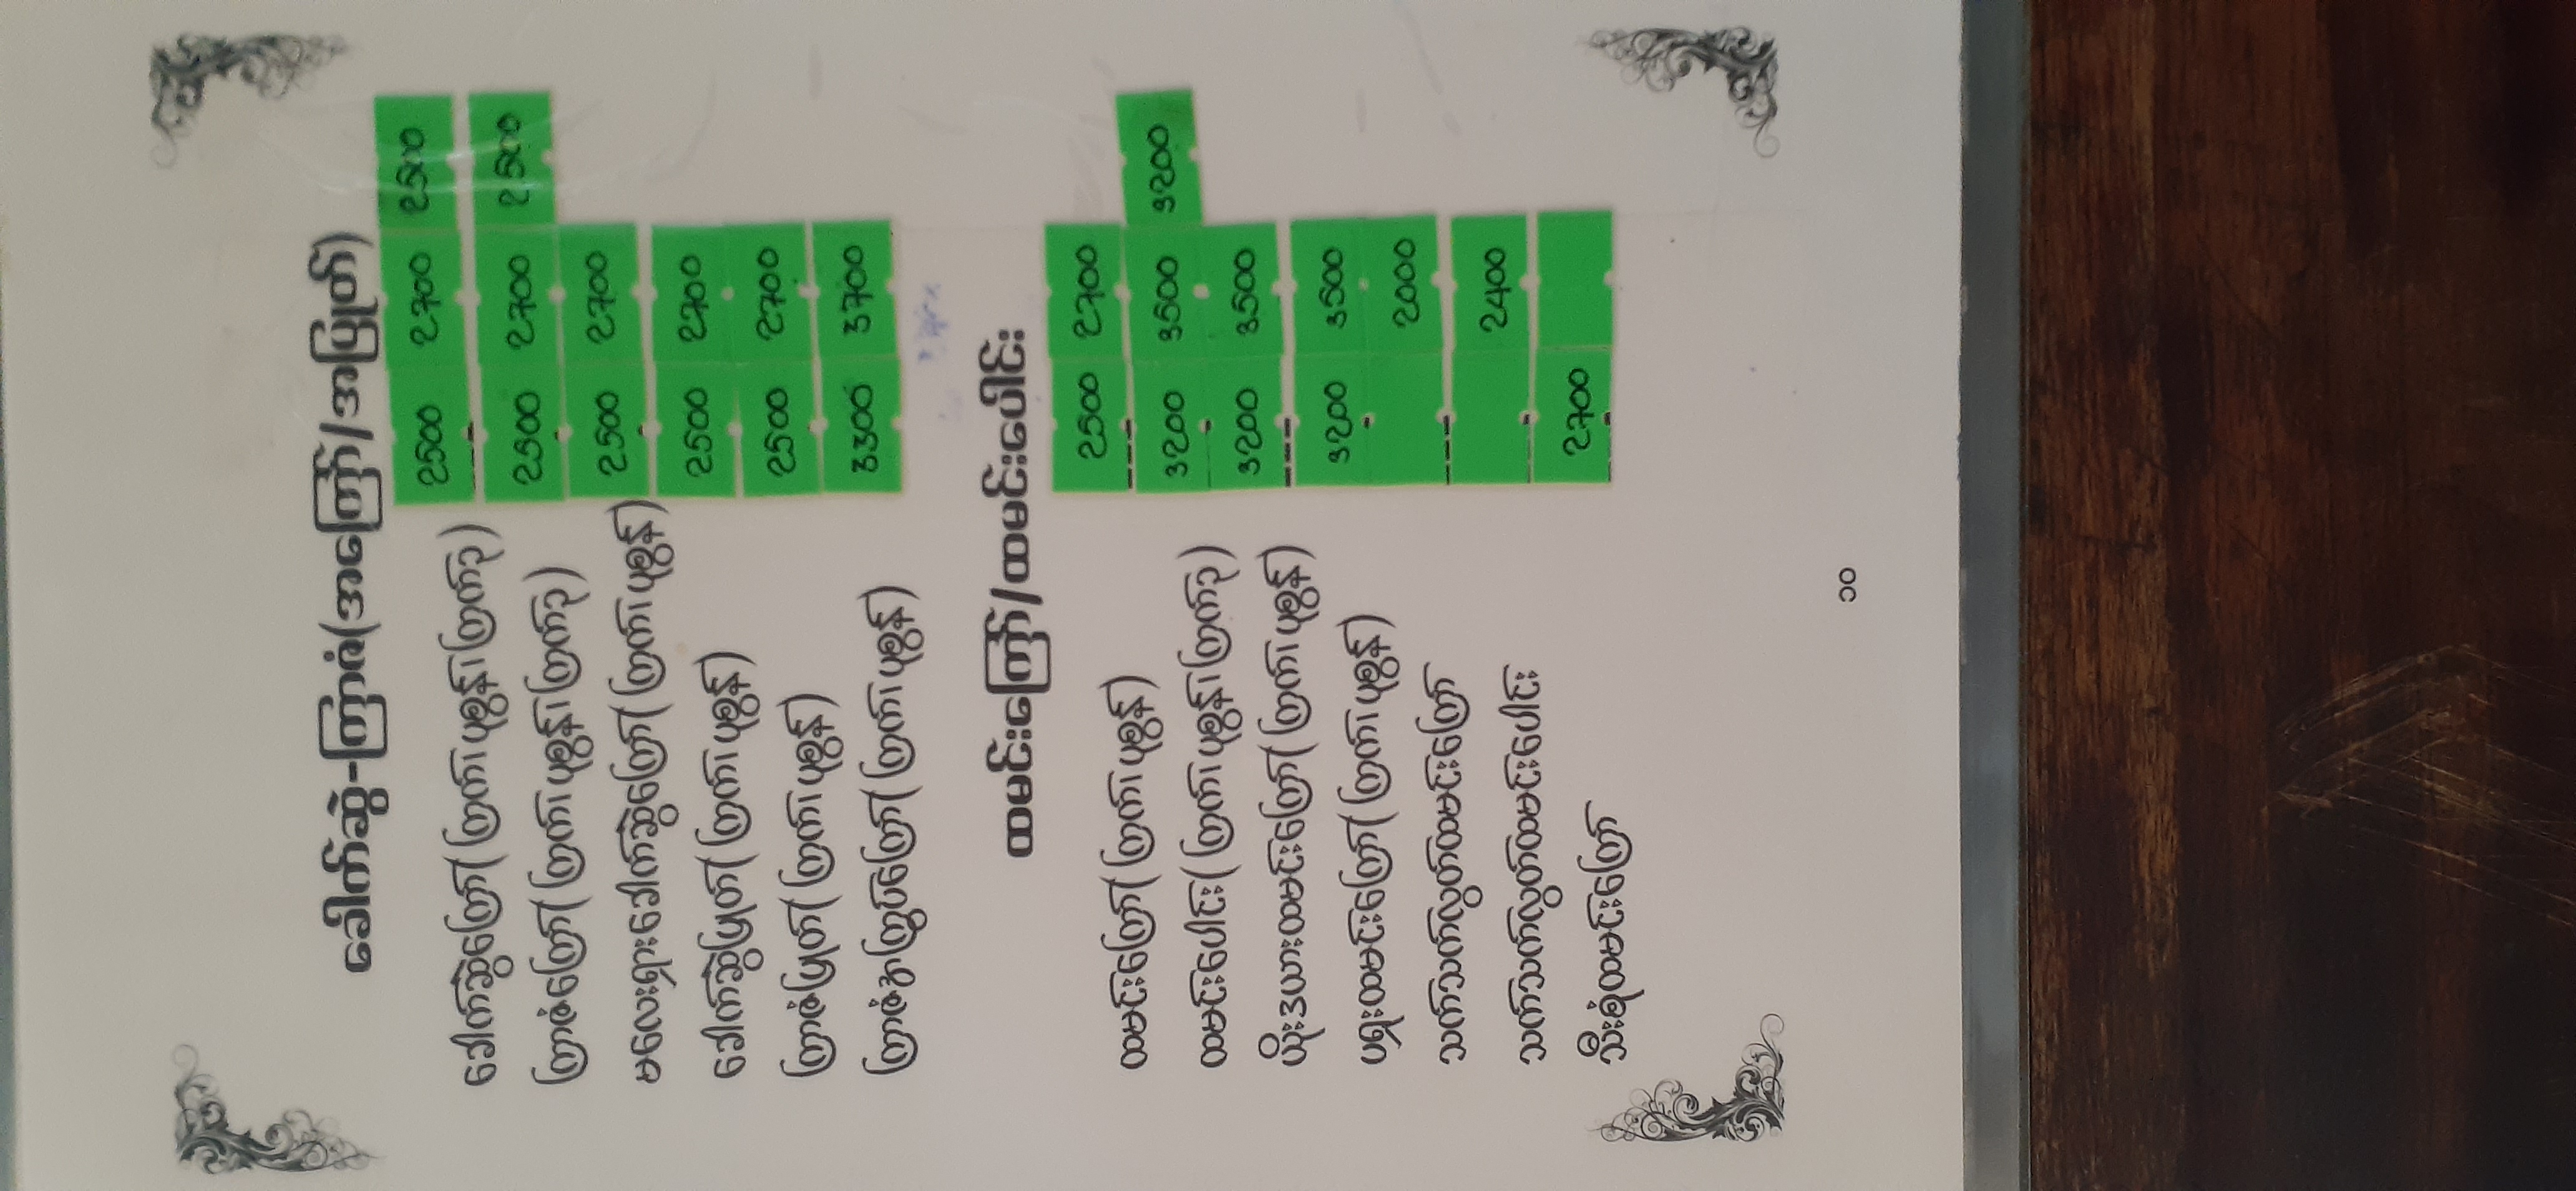 ခေါက်ဆွဲ-ကြာဇံ(အကြော်/အပြုတ်)
ခေါက်ဆွဲကြော်(ကြက်၊ပုစွန်၊ကြက်ဥ) 2500 2700 2500
ကြာဇံကြော်(ကြက်၊ပုစွန်၊ကြက်ဥ) 2500 2700 2500
မလေးရှားခေါက်ဆွဲကြော်(ကြက်၊ပုစွန်) 2500 2700
ခေါက်ဆွဲပြုတ်(ကြက်၊ပုစွန်) 2500 2700
ကြာဇံပြုတ်(ကြက်၊ပုစွန်) 2500 2700
ကြာဇံနုကြွပ်ကြော်(ကြက်၊ပုစွန်) 3300 3700
ထမင်းကြော်/ထမင်းပေါင်း
ထမင်းကြော်(ကြက်၊ပုစွန်) 2500 2700
ထမင်းပေါင်း(ကြက်၊ပုစွန်၊ကြက်ဥ) 3200 3500 3200
ယိုးဒယားထမင်းကြော်(ကြက်၊ပုစွန်) 3200 3500
ရှမ်းထမင်းကြော်(ကြက်၊ပုစွန်) 3200 3500
သက်သက်လွတ်ထမင်းကြော် 2000
သက်သက်လွတ်ထမင်းပေါင်း 2400
သီးစုံထမင်းကြော် 2700
၁၀